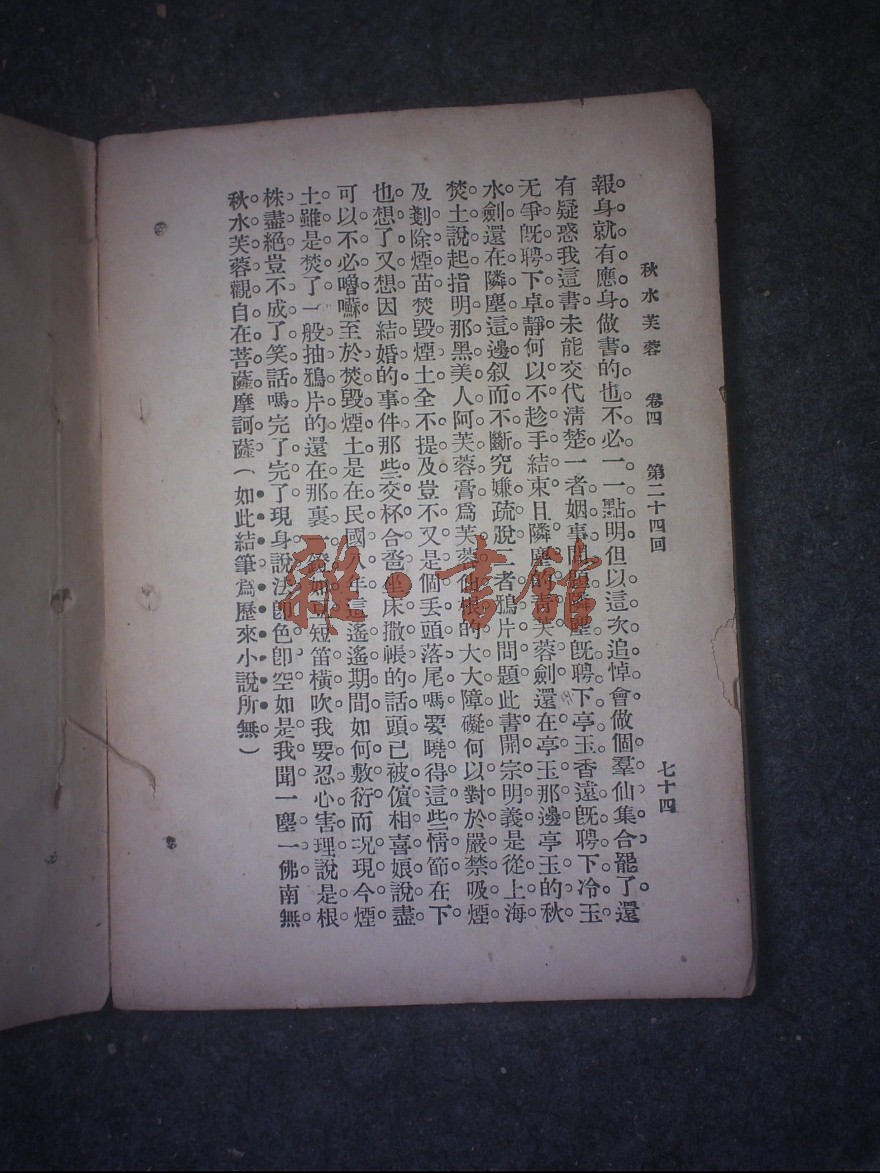 秋水芙蓉 卷四 第二十四回 七十四
報身就有應身做書的也不必一一點明但以這次追悼會做個羣仙集合罷了還
有疑惑我這書未能交代清楚一者姻事問題隣塵旣聘下亭玉香遠旣聘下冷玉
无爭旣聘下卓靜何以不趁手結束且隣塵的靑芙蓉劍還在亭玉那邊亭玉的秋
水劍還在隣塵這邊叙而不斷究嫌疏說二者鴉片問題此書開宗明義是從上海
焚土說起指明那黑美人阿芙蓉膏爲芙蓉仙根的大大障礙何以對於嚴禁吸煙
及剗除煙苗焚毀煙土全不提及豈不又是個丢頭落尾嗎要曉得這些情節在下
也想了又想因結婚的事件那些交杯合卺坐床撒帳的話頭已被儐相喜娘說盡
可以不必嚕囌至於焚毀煙土是在民國八年這遙遙期間如何敷衍而况現今煙
土雖是焚了一般抽鴉片的還在那裏一 短笛橫吹我要忍心害理說是根
株盡絕豈不成了笑話嗎完了完了現身說法卽色卽空如是我聞一塵一佛南無
秋水芙蓉觀自在菩薩摩訶薩（如此結筆爲歷來小說所無）
雜·書館